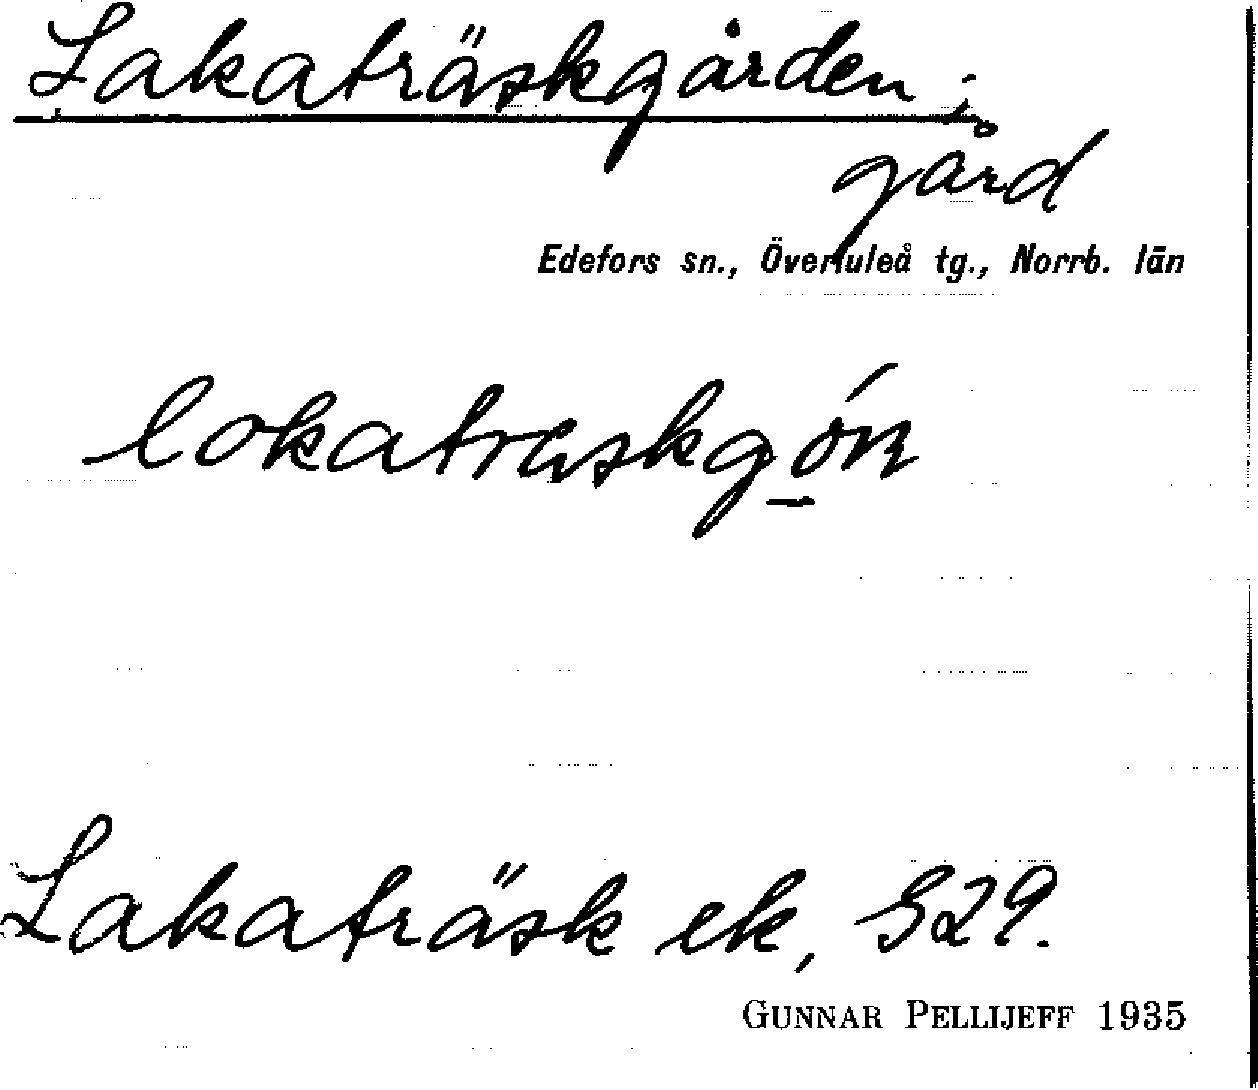 Lakaträskgården;
gård
Edefors sn., Överluleå tg., Norrb. län
lokatraskgo̱ń
Lakaträsk ek, S29.
GUNNAR PELLIJEFF 1935